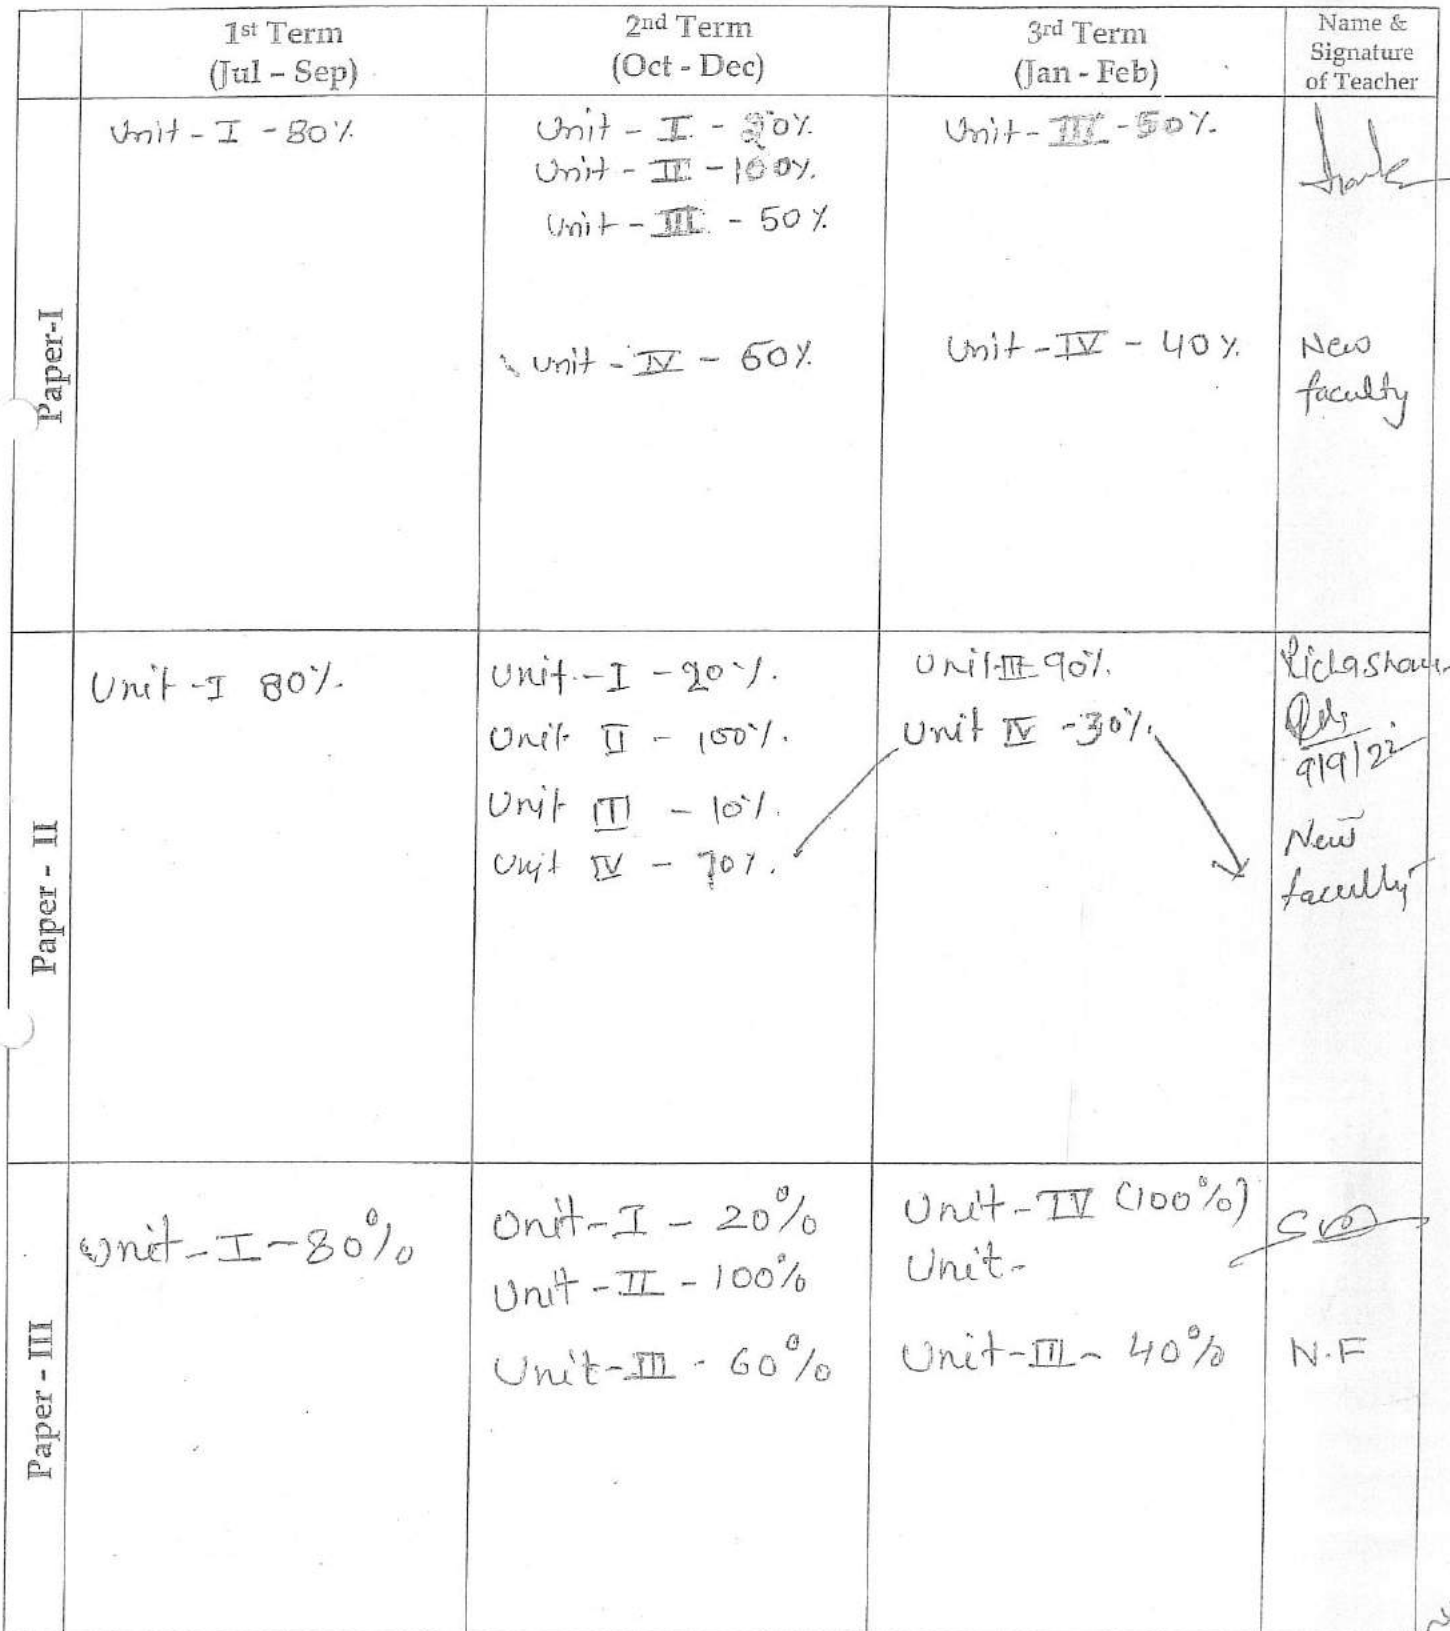 1st Term
(Jul – Sep)
2nd Term
(Oct - Dec)
3rd Term
(Jan - Feb)
Name &
Signature
of Teacher
Paper-I
Unit - I - 80%
Unit - I - 20%
Unit - II - 100%
Unit - III - 50%
Unit - IV - 60%
Unit - III - 50%
Unit - IV - 40%
New
faculty
Paper - II
Unit - I 80%
Unit - I - 20%
Unit II - 100%
Unit III - 10%
Unit IV - 70%
Unit III 90%
Unit IV - 30%
9/9/22
New
faculty
Paper - III
Unit - I - 80%
Unit - I - 20%
Unit - II - 100%
Unit - III - 60%
Unit - IV (100%)
Unit -
Unit - III - 40%
N.F